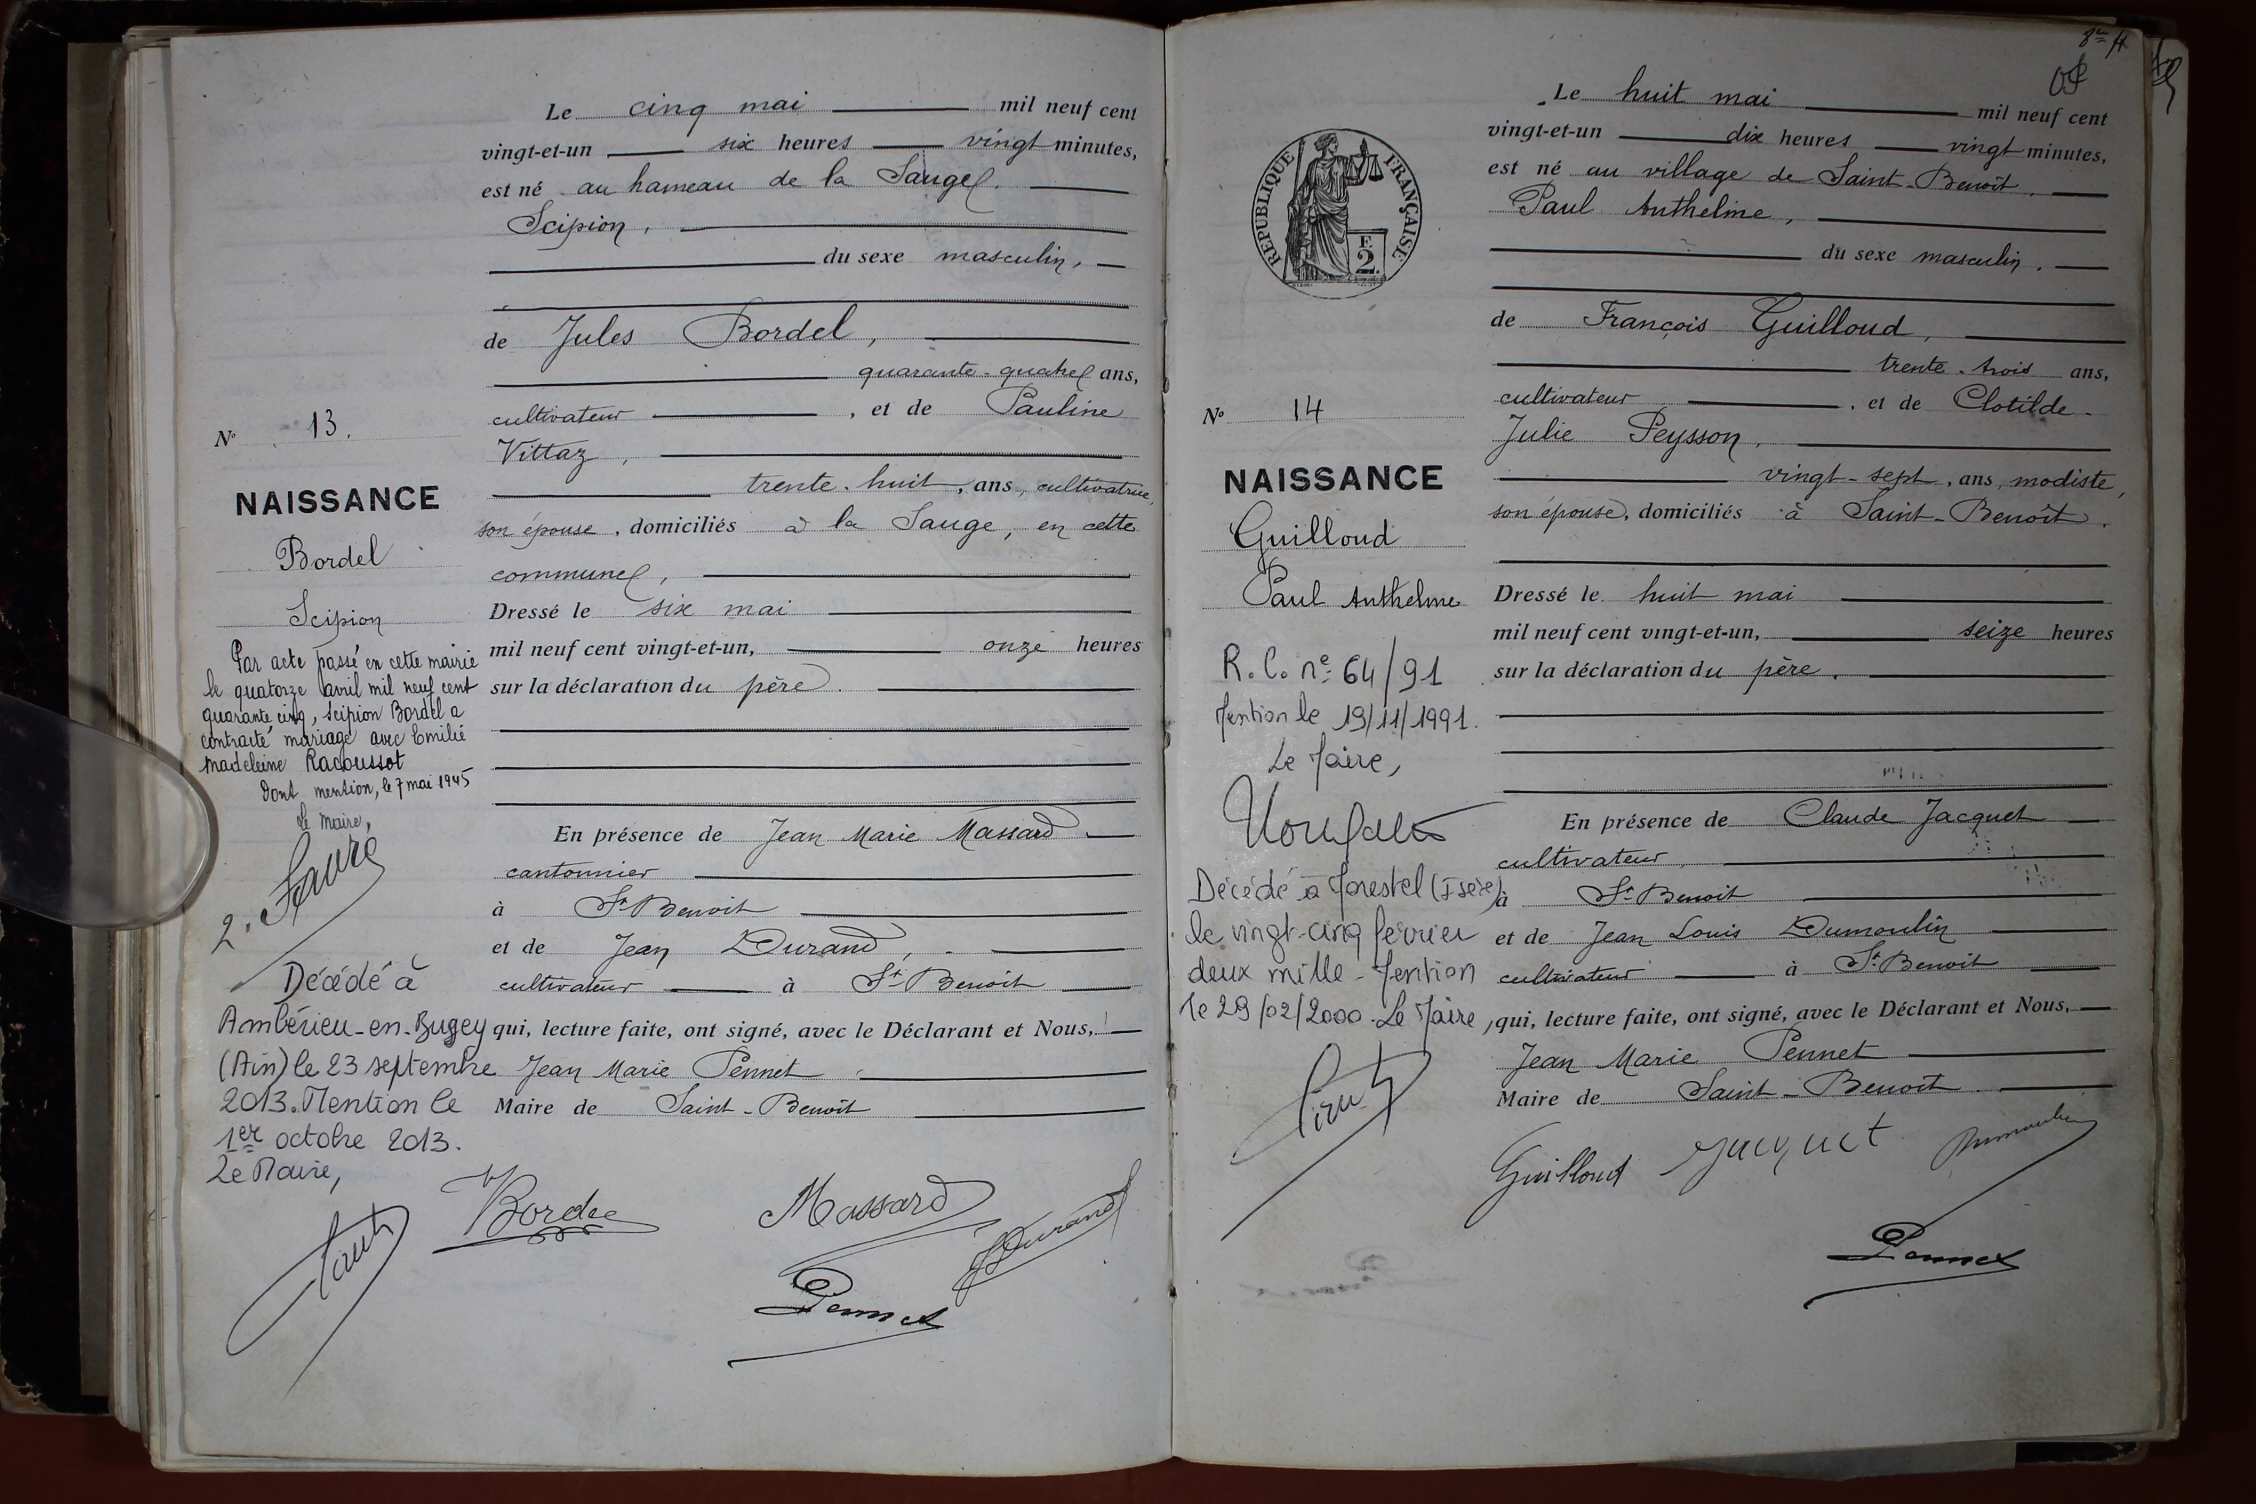 Le cinq mai mil neuf cent
vingt-et-un six heures vingt minutes,
est né au hameau de la Sauge
Scipion,
du sexe masculin,
de Jules Bordel,
quarante-quatre ans,
cultivateur, et de Pauline
Vittaz,
trente-huit, ans, cultivatrice,
son épouse, domiciliés à la Sauge, en cette
commune,
Dressé le six mai
mil neuf cent vingt-et-un, onze heures
sur la déclaration du père.
En présence de Jean Marie Massard
cantonnier
à St Benoit
et de Jean Durand,
cultivateur à St Benoit
qui, lecture faite, ont signé, avec le Déclarant et Nous,
Jean Marie Pennet
Maire de Saint-Benoît
N° 13.
NAISSANCE
Bordel
Scipion
Par acte passé en cette mairie
le quatorze avril mil neuf cent
quarante cinq, Scipion Bordel a
contracté mariage avec Emilie
Madeleine Racoussot
Dont mention, le 7 mai 1945
Le Maire,
Décédé à
Ambérieu-en-Bugey
(Ain) le 23 septembre
2013. Mention le
1er octobre 2013.
Le Maire,
Bordel
Massard
Durand
Pennet
Le huit mai mil neuf cent
vingt-et-un dix heures vingt minutes,
est né au village de Saint-Benoît.
Paul Anthelme,
du sexe masculin.
de François Guilloud,
trente-trois ans,
cultivateur, et de Clotilde
Julie Peysson,
vingt-sept, ans, modiste,
son épouse, domiciliés à Saint-Benoît.
Dressé le huit mai
mil neuf cent vingt-et-un, seize heures
sur la déclaration du père.
En présence de Claude Jacquet
cultivateur
à St Benoit
et de Jean Louis Dumoulin
cultivateur à St Benoit
qui, lecture faite, ont signé, avec le Déclarant et Nous,
Jean Marie Pennet
Maire de Saint-Benoît
RÉPUBLIQUE FRANÇAISE
F.
2.
N° 14
NAISSANCE
Guilloud
Paul Anthelme
R.C. n° 64/91
Mention le 19/11/1991.
Le Maire,
Décédé à Morestel (Isère)
le vingt-cinq février
deux mille - Mention
le 29/02/2000. Le Maire,
Guilloud
Jacquet
Dumoulin
Pennet